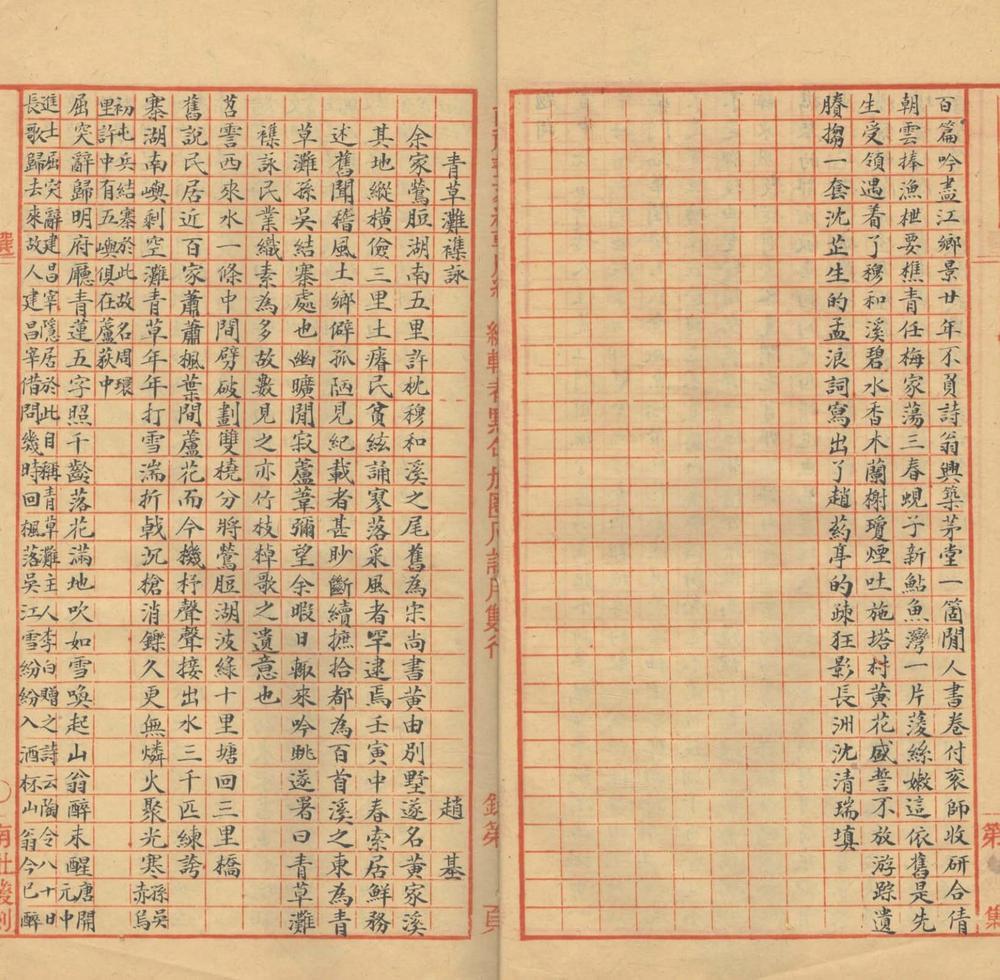 百篇吟盡江鄉景廿年不負詩翁興築茅堂一箇閒人書卷付衮師收研合倩
朝雲捧漁枻要樵青任梅家蕩三春蜆子新鮎魚灣一片蓤絲嫩這依舊是先
生受領過着了穆和溪碧水香木蘭榭瓊煙吐施塔村黃花盛誓不放游踪遺
賸搊一套沈芷生的孟浪詞寫出了趙葯亭的疎狂影長洲沈清瑞填
青草灘襍詠 趙基
余家鶯脰湖南五里許枕穆和溪之尾舊為宋尚書黃由別墅遂名黃家溪
其地縱橫儉三里土瘠民貧絃誦寥落采風者罕逮焉壬寅中春索居鮮務
述舊聞稽風土鄉僻孤陋見紀載者甚眇斷續摭拾都為百首溪之東為青
草灘孫吳結寨處也幽曠閒寂蘆葦彌望余暇日輙來吟眺遂署曰青草灘
襍詠民業織素為多故數見之亦竹枝棹歌之遺意也
苕霅西來水一條中間劈破劃雙橈分將鶯脰湖波綠十里塘回三里橋
舊說民居近百家蕭蕭楓葉間蘆花而今機杼聲聲接出水三千匹練誇
寨湖南嶼剩空灘青草年年打雪湍折戟沉槍消鑠久更無燐火聚光寒
孫吳
赤烏
初屯兵結寨於此故名周環
里許中有五嶼俱在蘆荻中
屈突辭歸明府廳青蓮五字照千齡落花滿地吹如雪喚起山翁醉未醒
唐開
元中
進士屈突辭建昌宰隱居於此自稱青草灘主人李白贈之詩云陶令八十日
長歌歸去來故人建昌宰借問幾時回楓落吳江雪紛紛入酒杯山翁今已醉